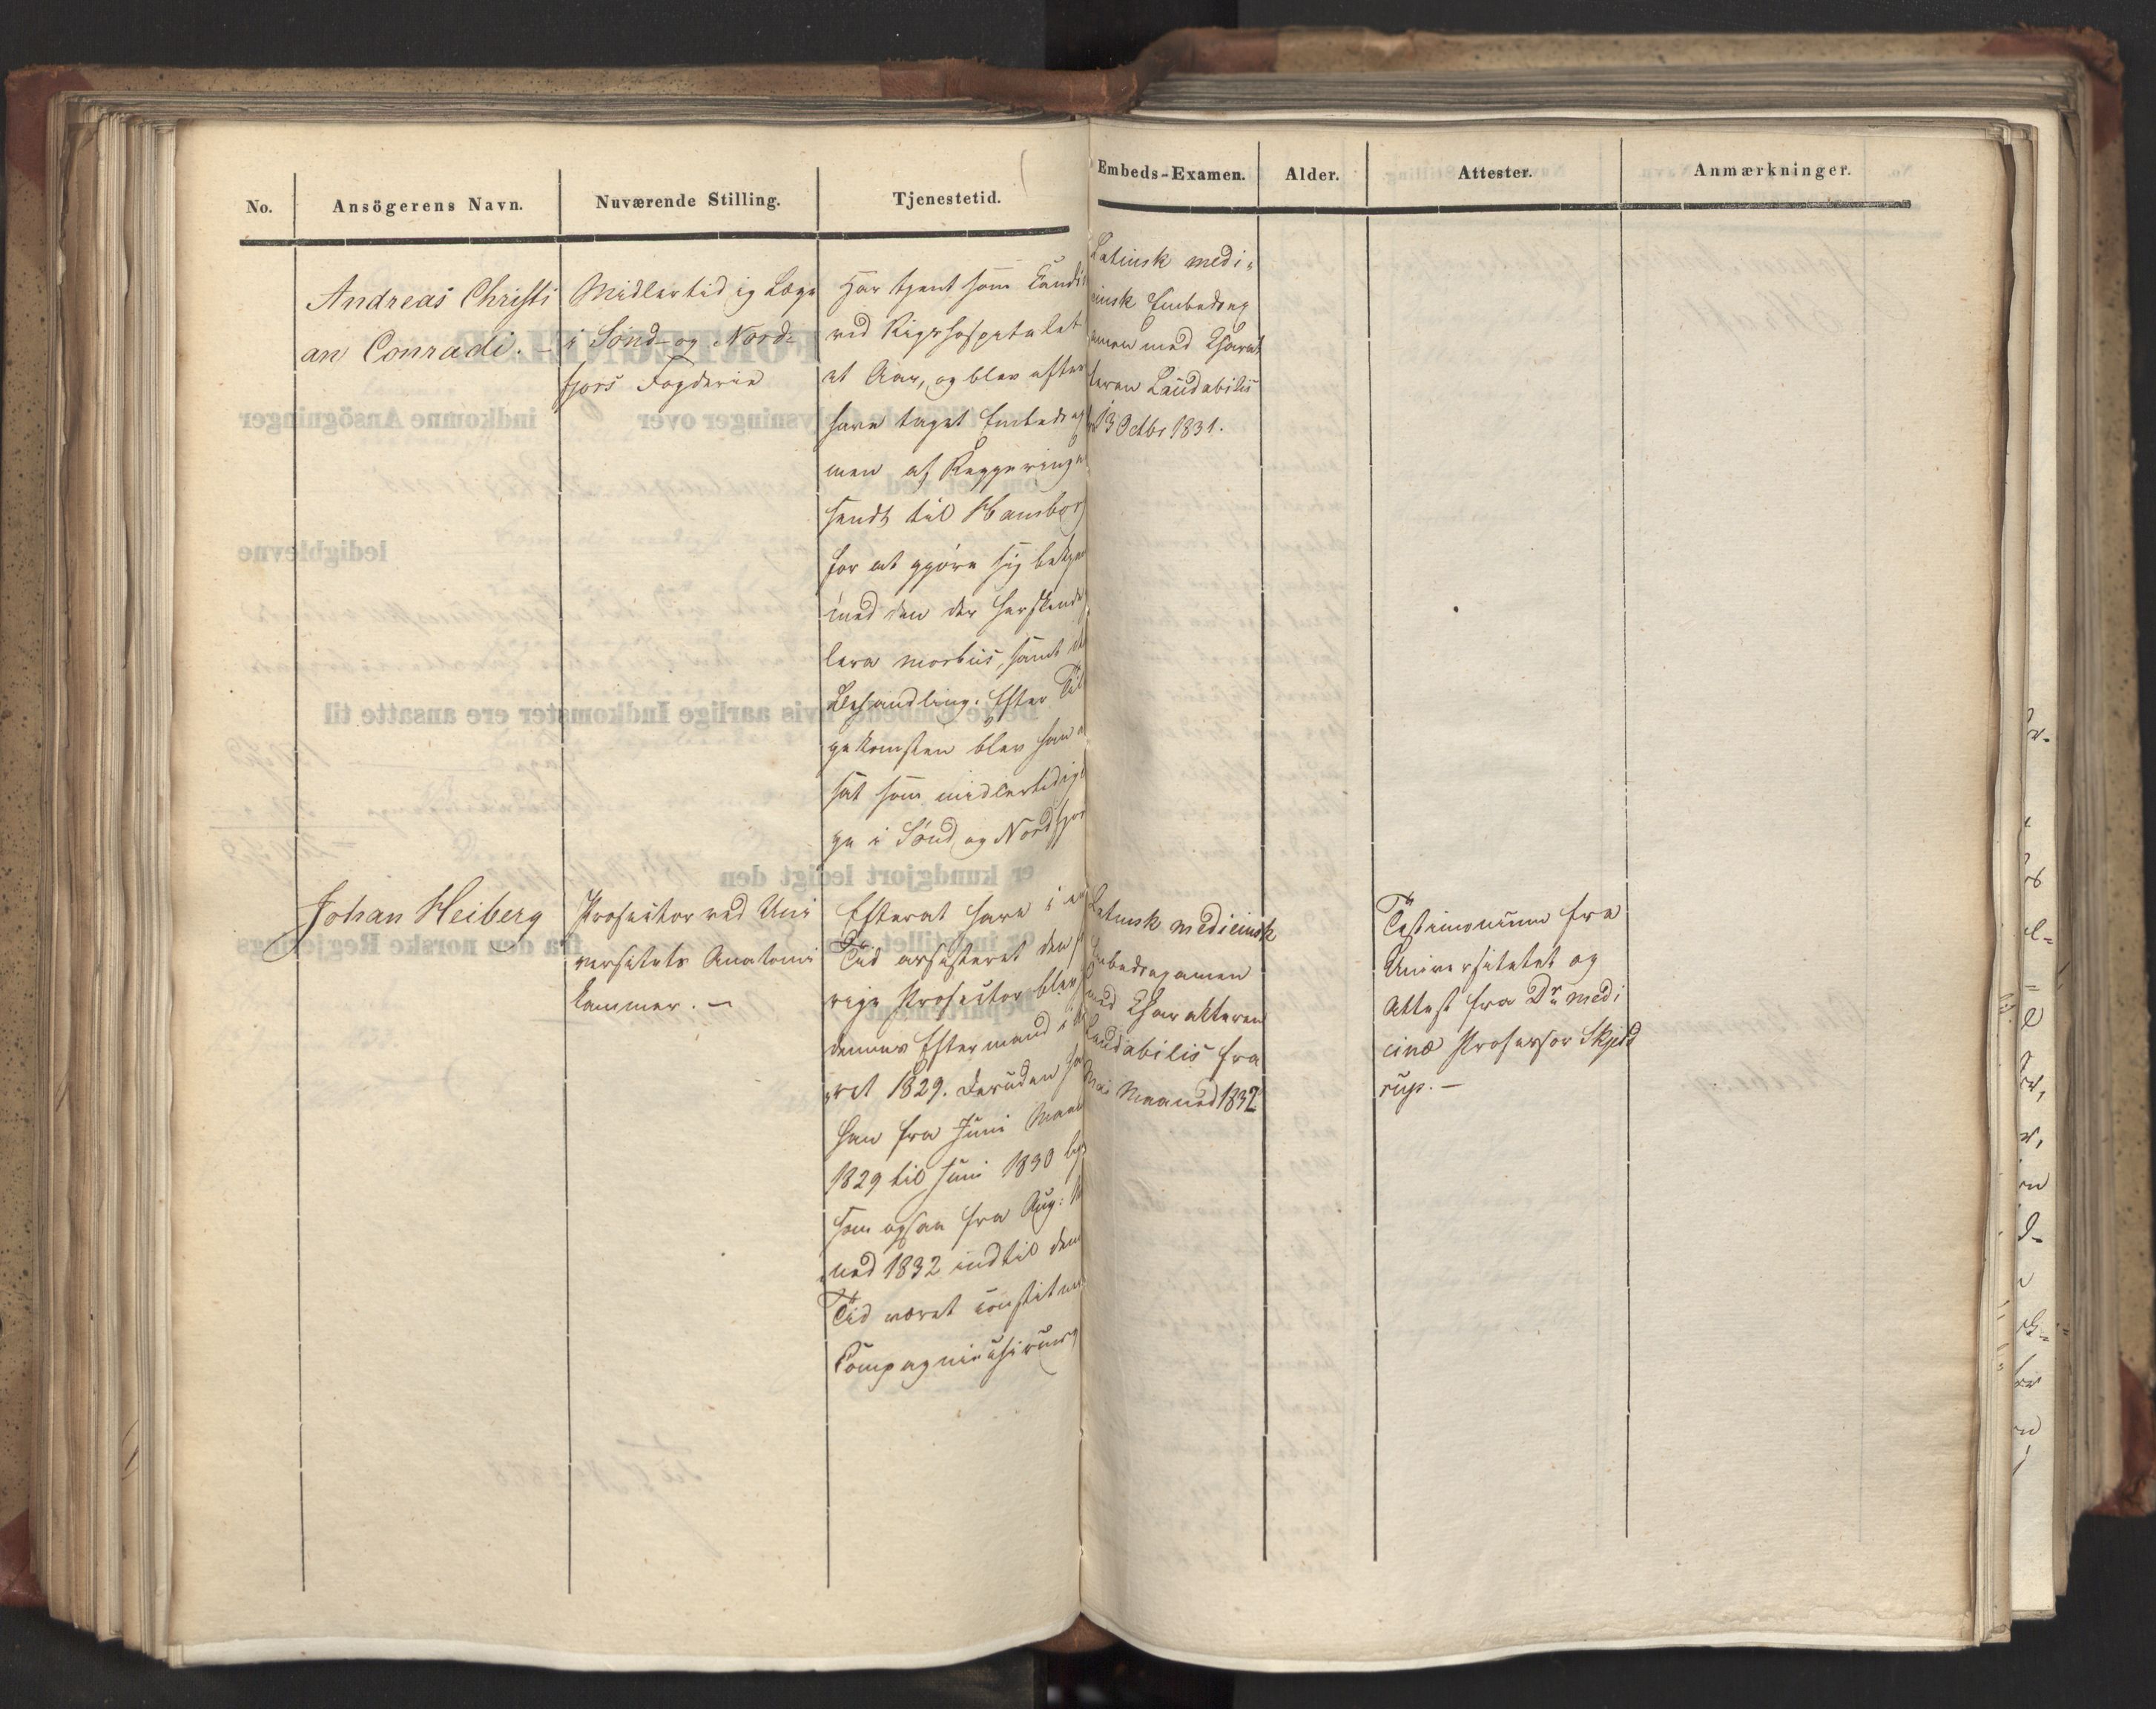 No.
Ansögerens Navn.
Nuværende Stilling.
Tjenestetid.
Embeds-Examen.
Alder.
Attester.
Anmærkninger.
Andreas Christi
an Conradi. –
Midlertidig Læge
i Sönd- og Nord-
fjors Fogderie
Har tjent som Candi
ved Rigshospitalet
et Aar, og blev efter
have taget Embedsex
men af Regjeringen
sendt til Hamborg
for at gjöre sig bekjen
med den der herskende
lera morbus, samt de
Behandling. Efter Til
gekomsten blev han a
sat som midlertidig
ge i Sönd og Nordfjor
Latinsk medi-
cinsk Embedsex
amen med Charak
teren Laudabilis
13 Octbr 1831.
Johan Heiberg
Prosector ved Uni
versitets Anatomi
kammer. –
Efterat have i en
Tid assisteret den
rige Prosector blev
dennes Eftermand i
ret 1829. Desuden ha
han fra Juni Maan
1829 til Juni 1830
som ogsaa fra Aug: M
ned 1832 indtil den
Tid været constitue
Compagniechirurg
Latinsk medicinsk
Embedsexamen
med Charakteren
Laudabilis fra
Mai Maaned 1832
Testimonium fra
Universitetet og
Attest fra Dr medi
cinæ Professor Skjeld
rup. –